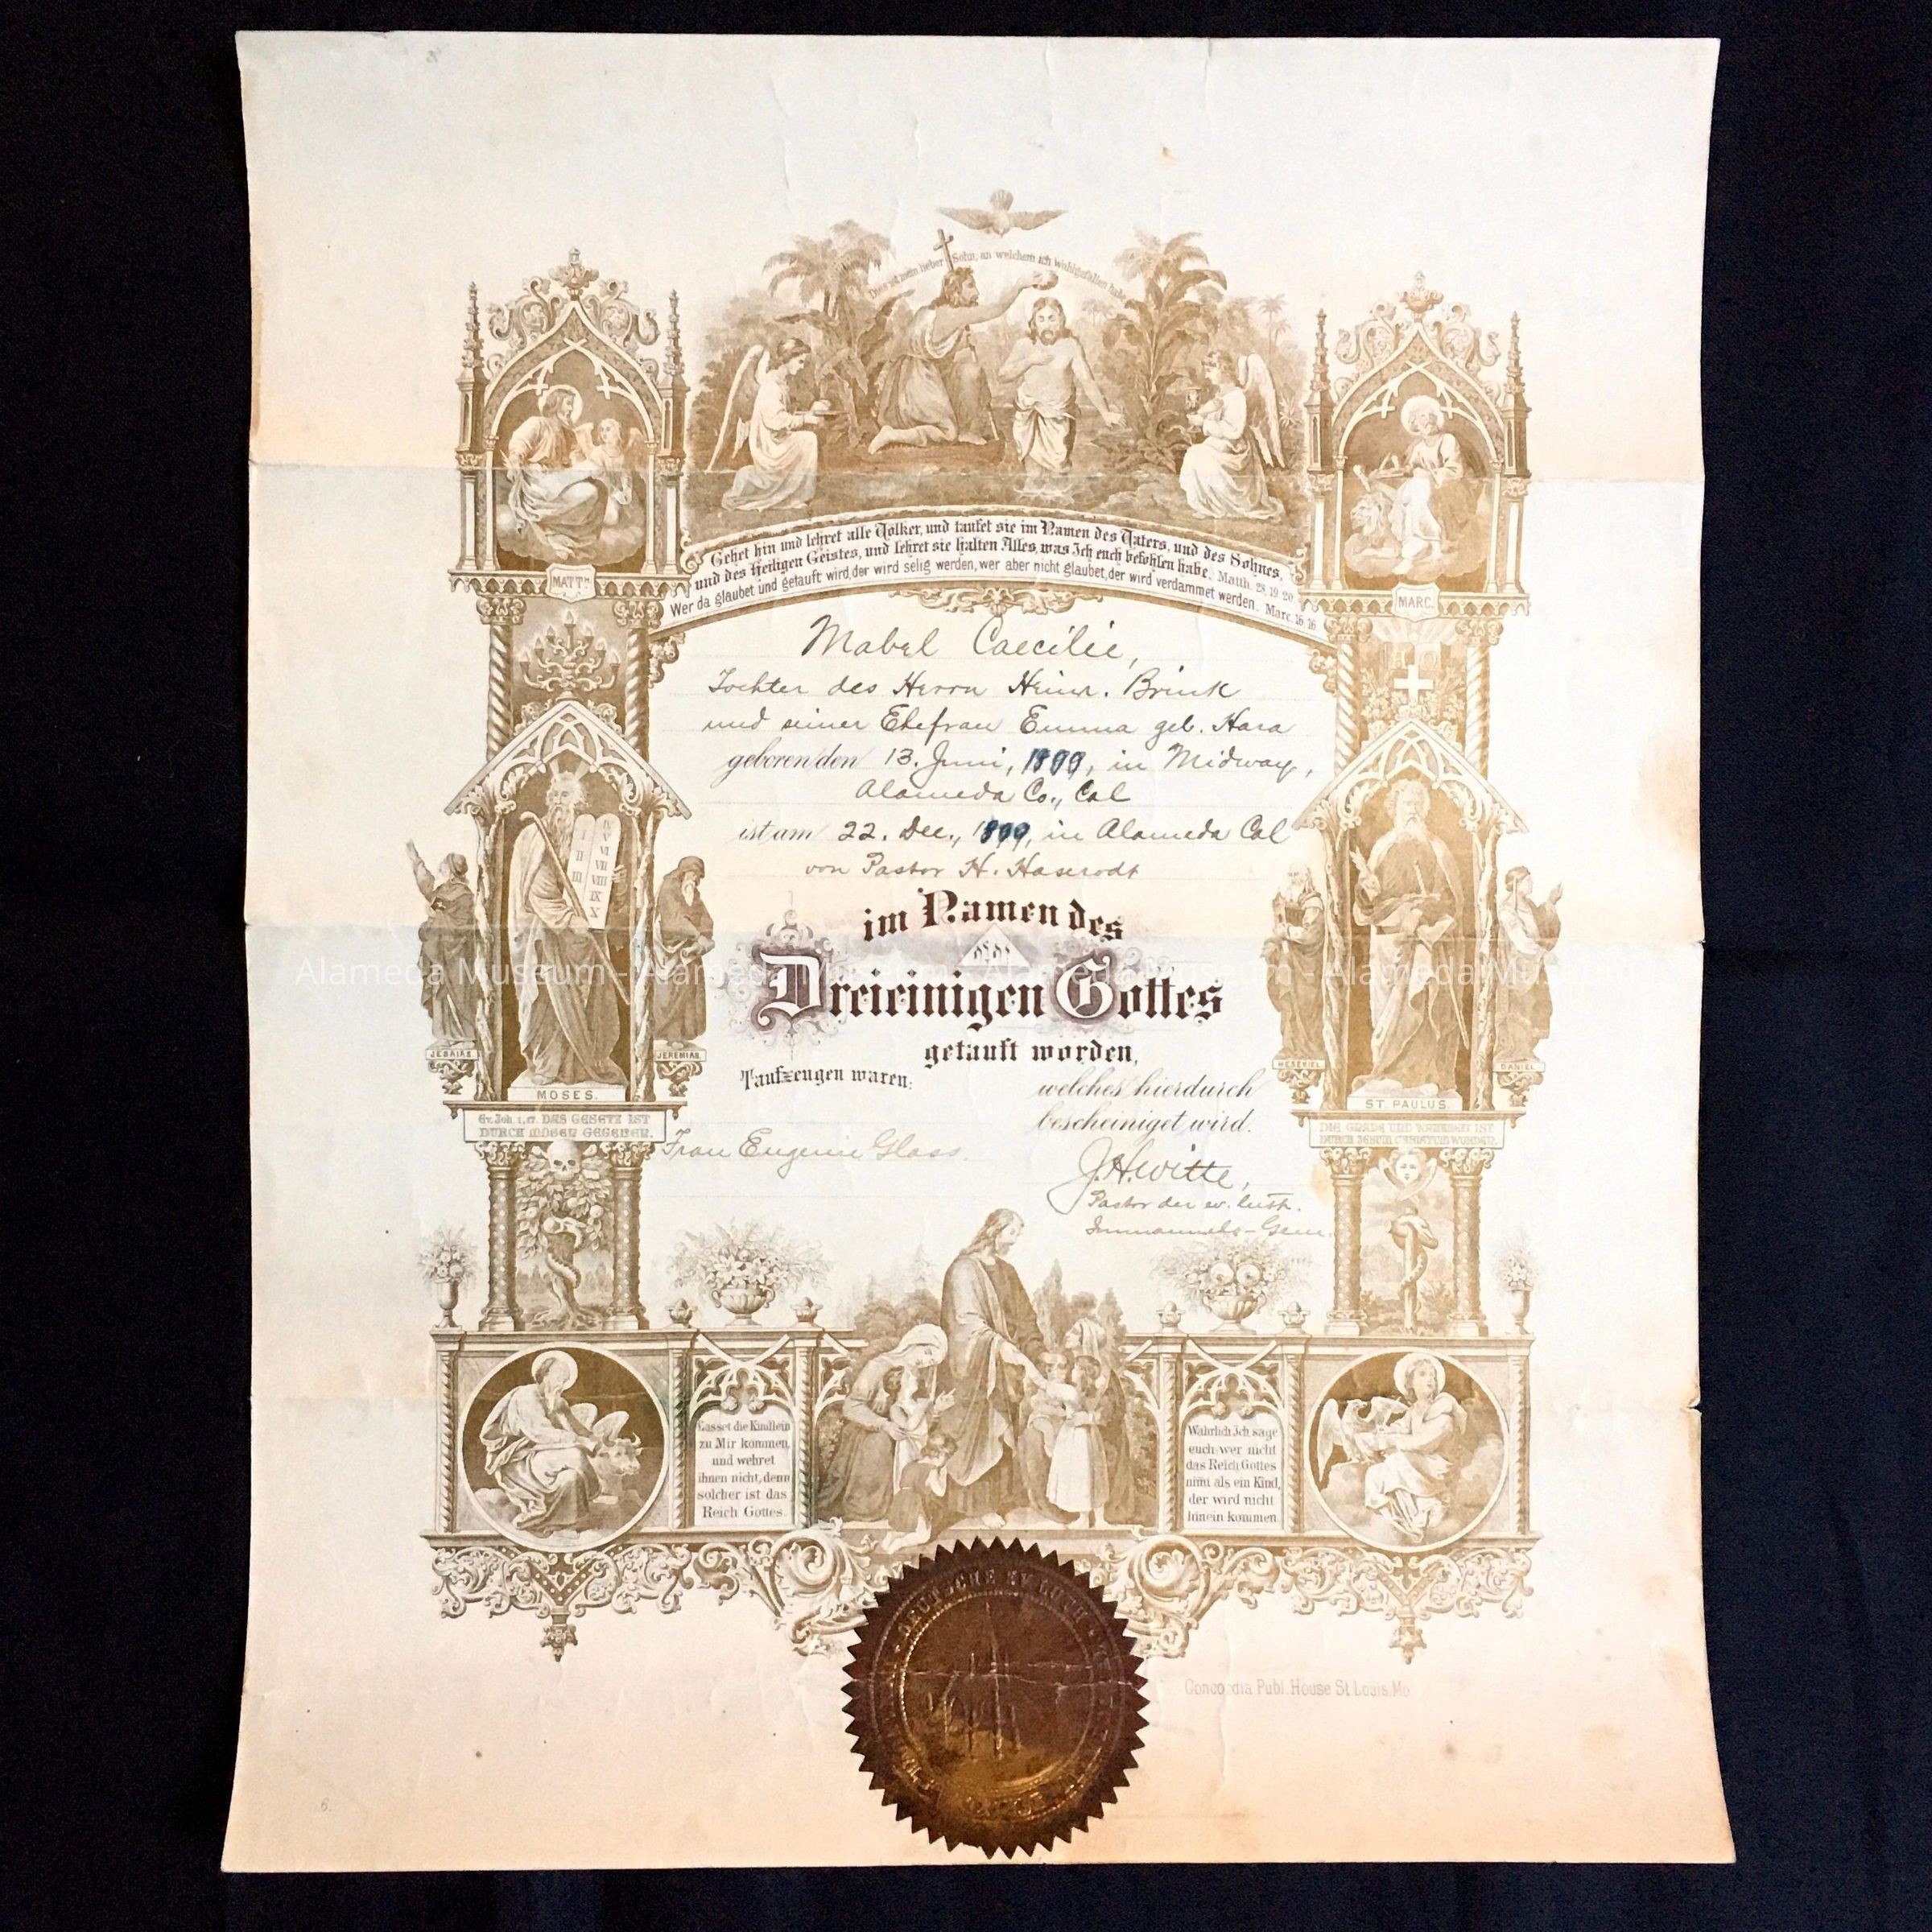 Dies ist mein lieber Sohn, an welchem ich wohlgefallen habe
Gehet hin und lehret alle Völker, und taufet sie im Namen des Vaters, und des Sohnes,
und des Heiligen Geistes, und lehret sie halten Alles, was Ich euch befohlen habe. Matth. 28, 19 20
Wer da glaubet und getauft wird, der wird selig werden, wer aber nicht glaubet, der wird verdammet werden. Marc. 16, 16
MATTH.
MARC.
Mabel Caecilie,
Tochter des Herrn Heinr. Brink
und seiner Ehefrau Emma geb. Hara
geboren den 13. Juni, 1899, in Midway,
Alameda Co., Cal
ist am 22. Dec., 1899, in Alameda Cal
von Pastor H. Haserodt
im Namen des
Dreieinigen Gottes
getauft worden,
Taufzeugen waren:
welches hierdurch
bescheiniget wird.
Frau Eugenie Glass.
J.H. Witte,
Pastor der ev. luth.
Immanuels-Gem.
I
II
III
IV
V
VI
VII
VIII
IX
X
JESAIAS
JEREMIAS
HESEKIEL
DANIEL
MOSES.
ST. PAULUS.
Ev. Joh. 1, 17. DAS GESETZ IST
DURCH MOSEN GEGEBEN.
DIE GNADE UND WAHRHEIT IST
DURCH JESUM CHRISTUM WORDEN.
Lasset die Kindlein
zu Mir kommen,
und wehret
ihnen nicht, denn
solcher ist das
Reich Gottes.
Wahrlich Ich sage
euch wer nicht
das Reich Gottes
nimt als ein Kind,
der wird nicht
hinein kommen.
DEUTSCHE EV LUTH
Concordia Publ. House St. Louis, Mo.
6.
Alameda Museum - Alameda Museum - Alameda Museum - Alameda Museum